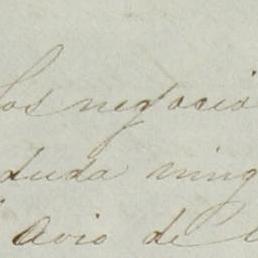 Los negocia
duda ning
Avio de